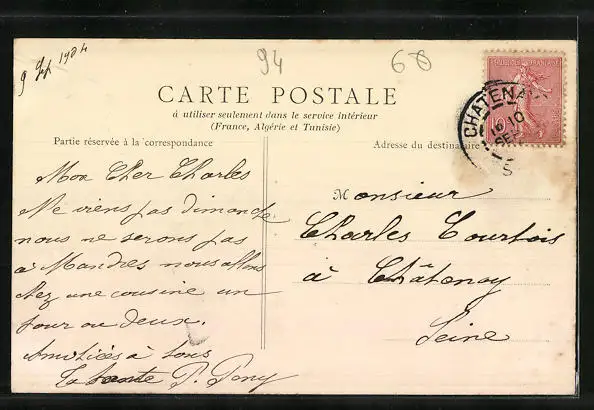 9 Sep 1904
94
60
CARTE POSTALE
à utiliser seulement dans le service intérieur
(France, Algérie et Tunisie)
Partie réservée à la correspondance
Adresse du destinataire
CHATENAY
16 10
SEPT
10
Mon Cher Charles
Ne viens pas dimanche
nous ne serons pas
à Mandres nous allons
chez une cousine un
jour ou deux.
Amitiées à tous
Ta tante P.
Monsieur
Charles Courtois
à Châtenay
Seine